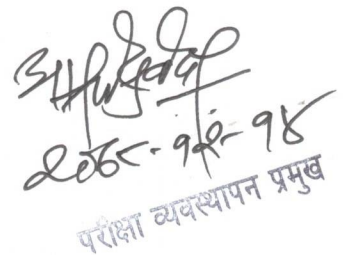 २०६८-१२-१४
परीक्षा व्यवस्थापन प्रमुख